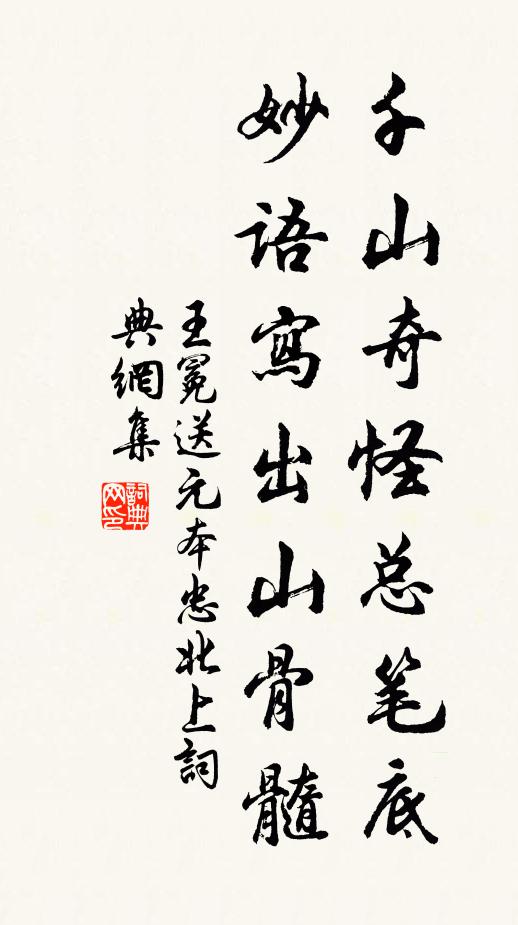 千山奇怪总笔底
妙語寫出山骨髓
王冕送元本忠北上詞
典網集
詞典网印